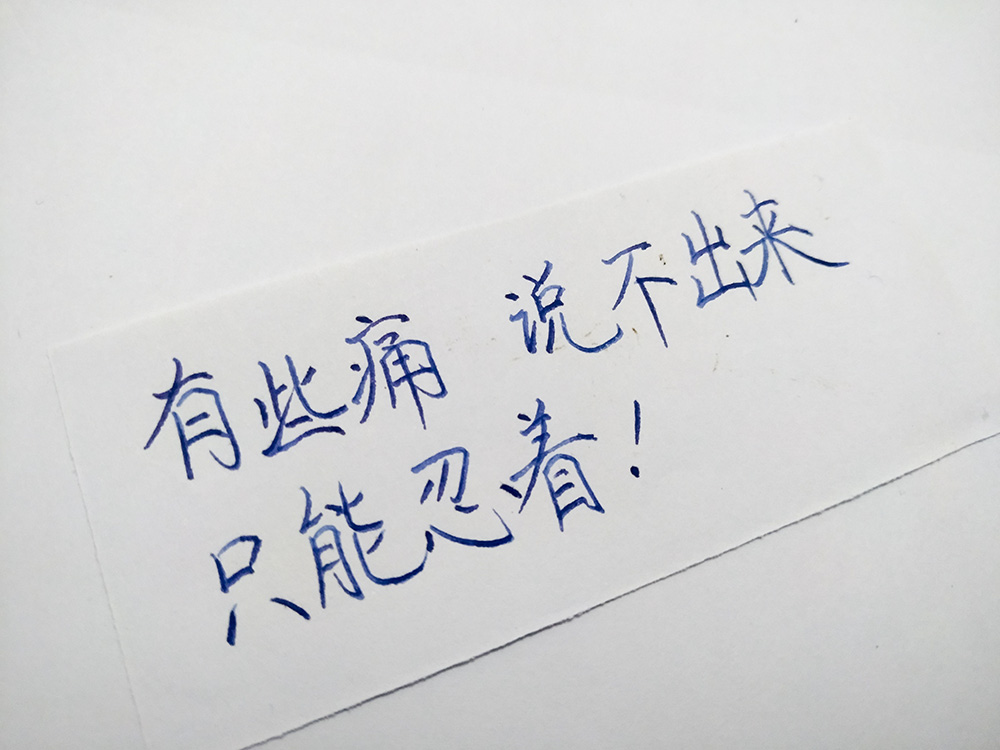 有些痛 说不出来
只能忍着!